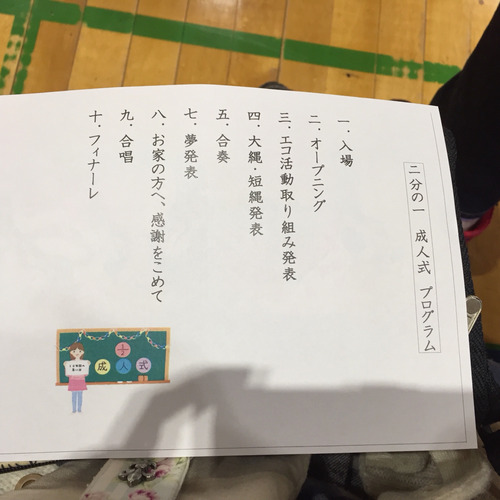 二分の一 成人式 プログラム
一．入場
二．オープニング
三．エコ活動取り組み発表
四．大縄・短縄発表
五．合奏
七．夢発表
八．お家の方へ、感謝をこめて
九．合唱
十．フィナーレ
½
成人式